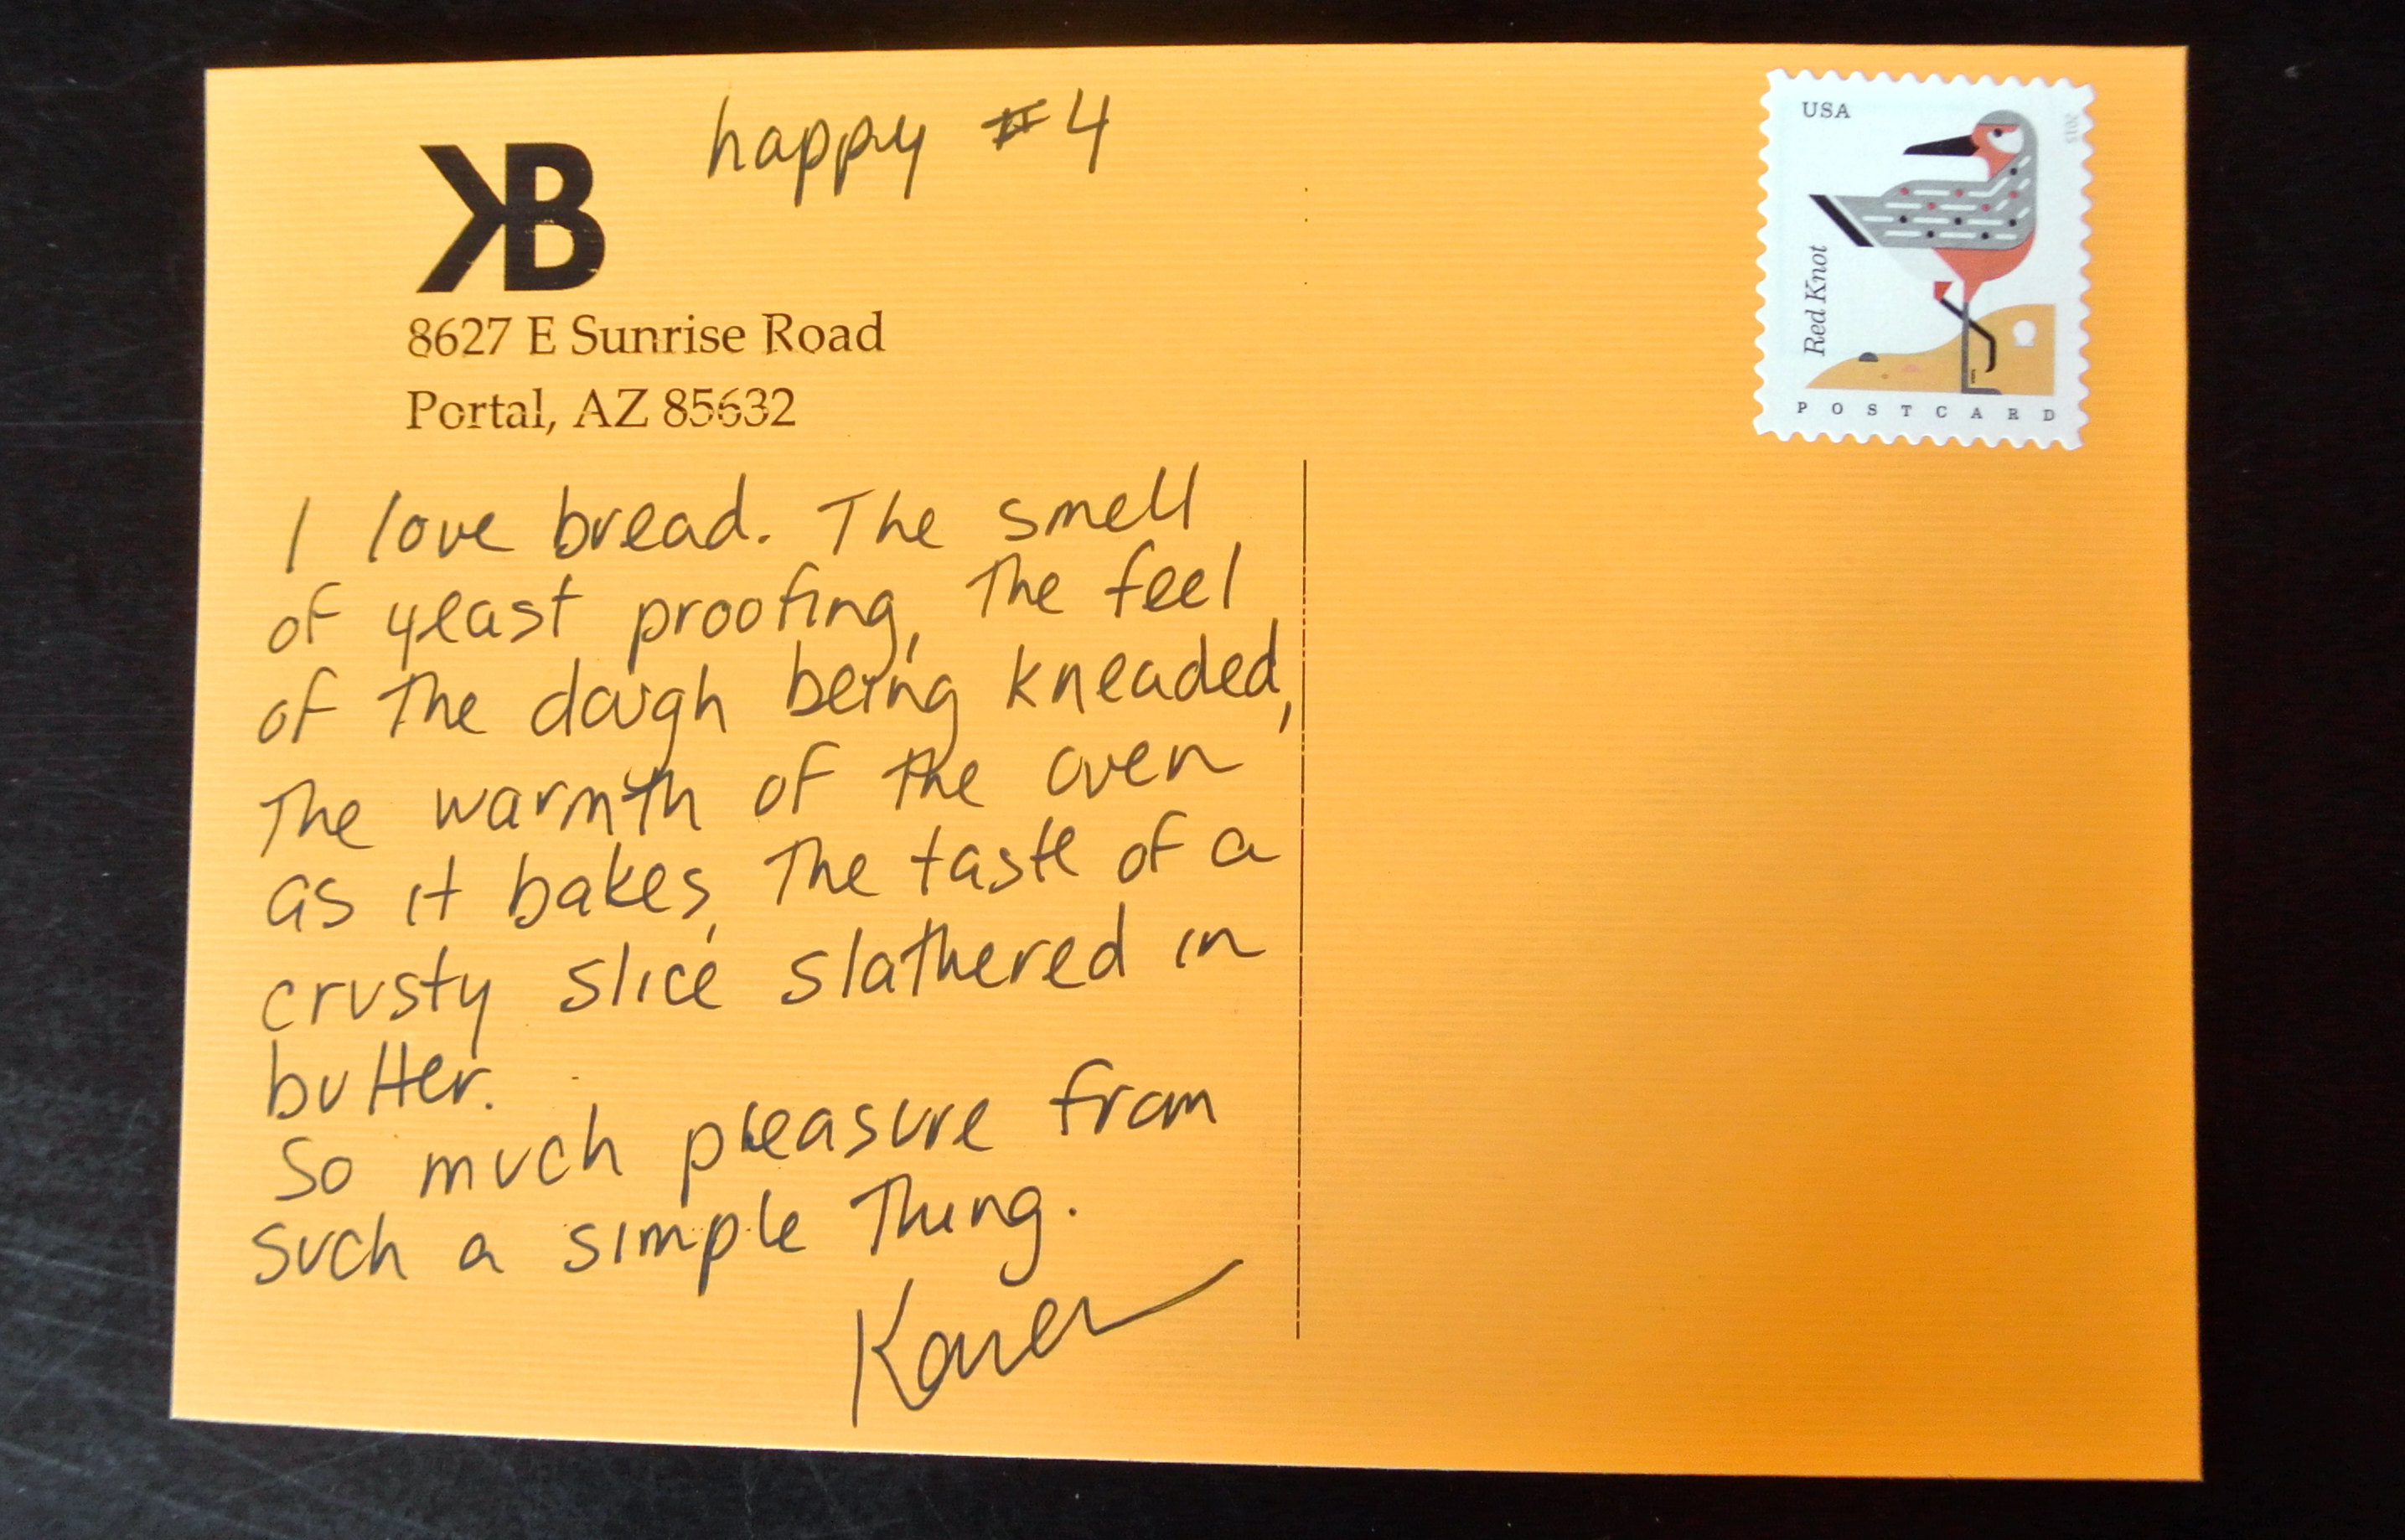 happy #4
KB
8627 E Sunrise Road
Portal, AZ 85632
I love bread. The smell
of yeast proofing, the feel
of the dough being kneaded,
The warmth of the oven
as it bakes, The taste of a
crusty slice slathered in
butter.
So much pleasure from
such a simple Thing.
Karen
USA
2015
Red Knot
POSTCARD